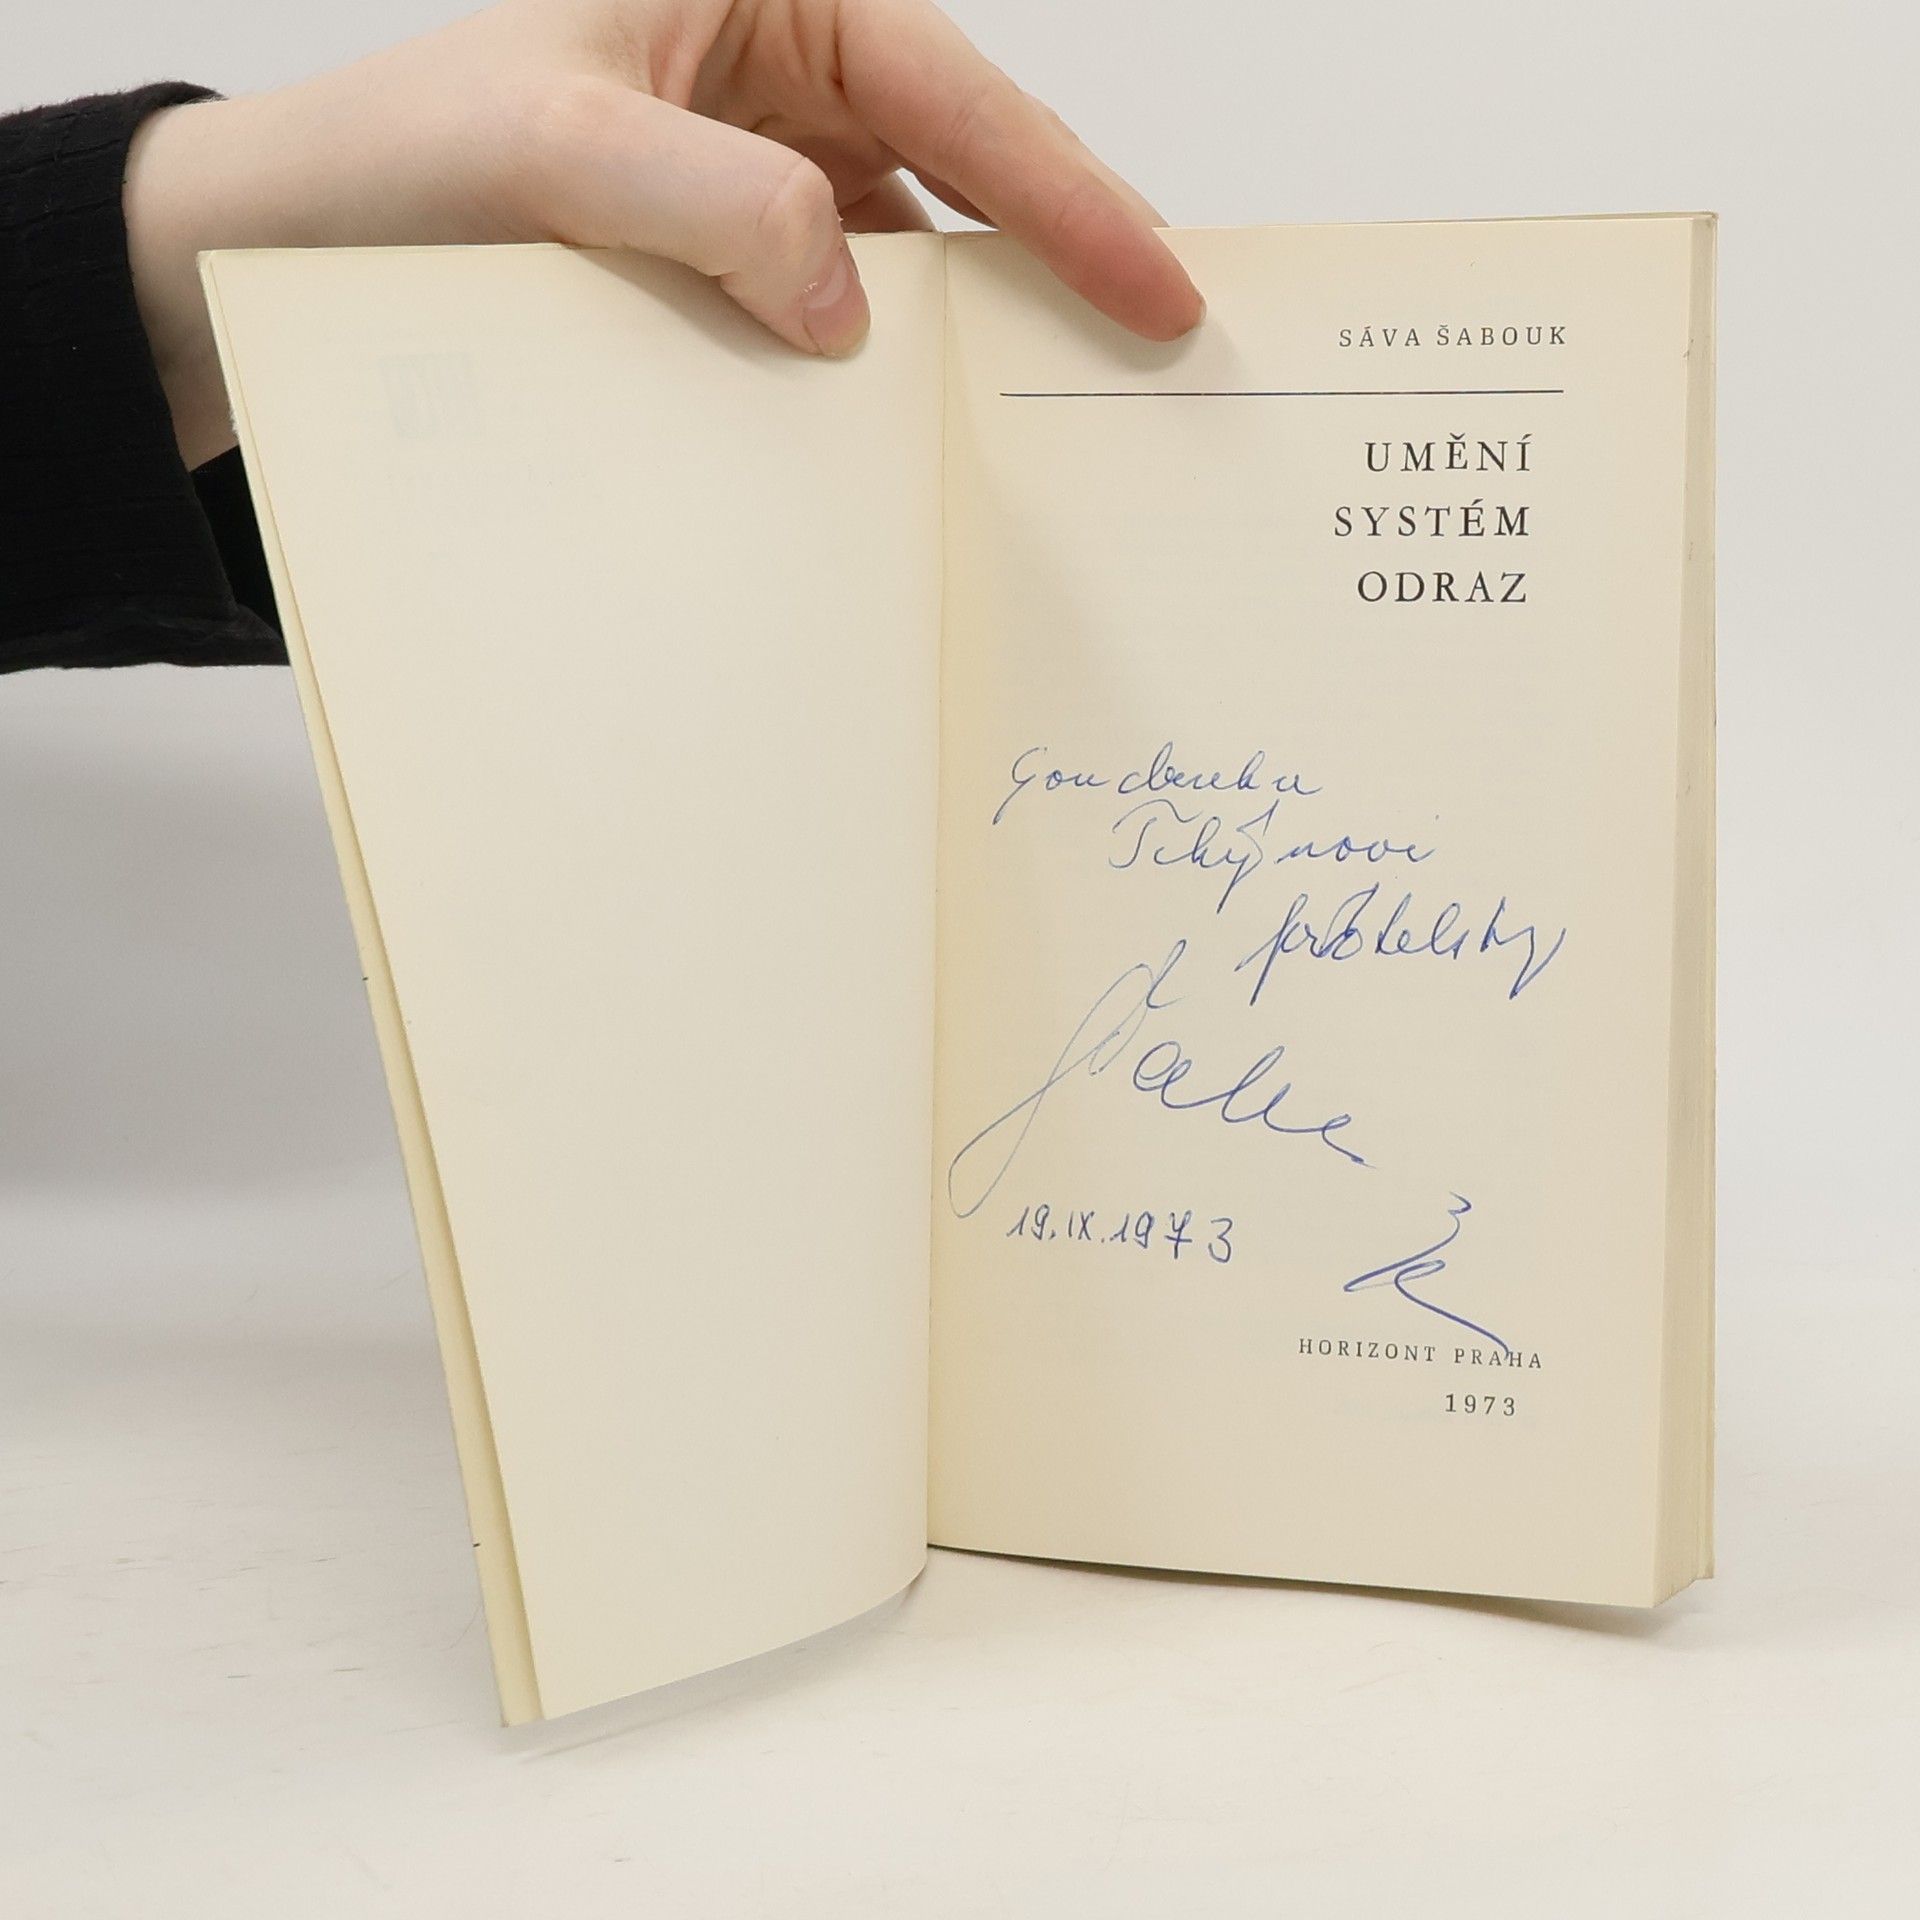 SÁVA ŠABOUK
UMĚNÍ
SYSTÉM
ODRAZ
přátelsky
19.IX.1973
HORIZONT PRAHA
1973